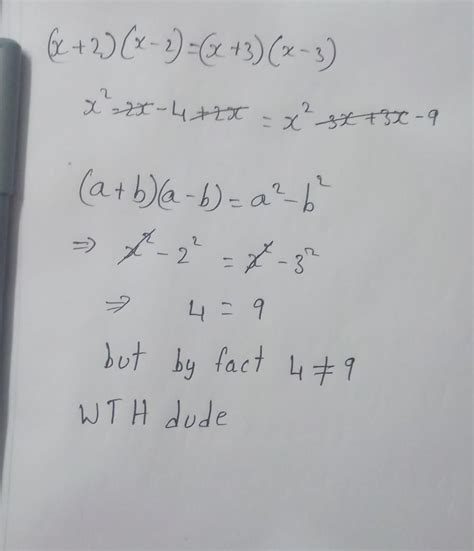 (x+2)(x-2)=(x+3)(x-3)
x²-2x-4+2x = x²-3x+3x-9
(a+b)(a-b)=a²-b²
⇒ x²-2² = x²-3²
⇒ 4 = 9
but by fact 4≠9
WTH dude